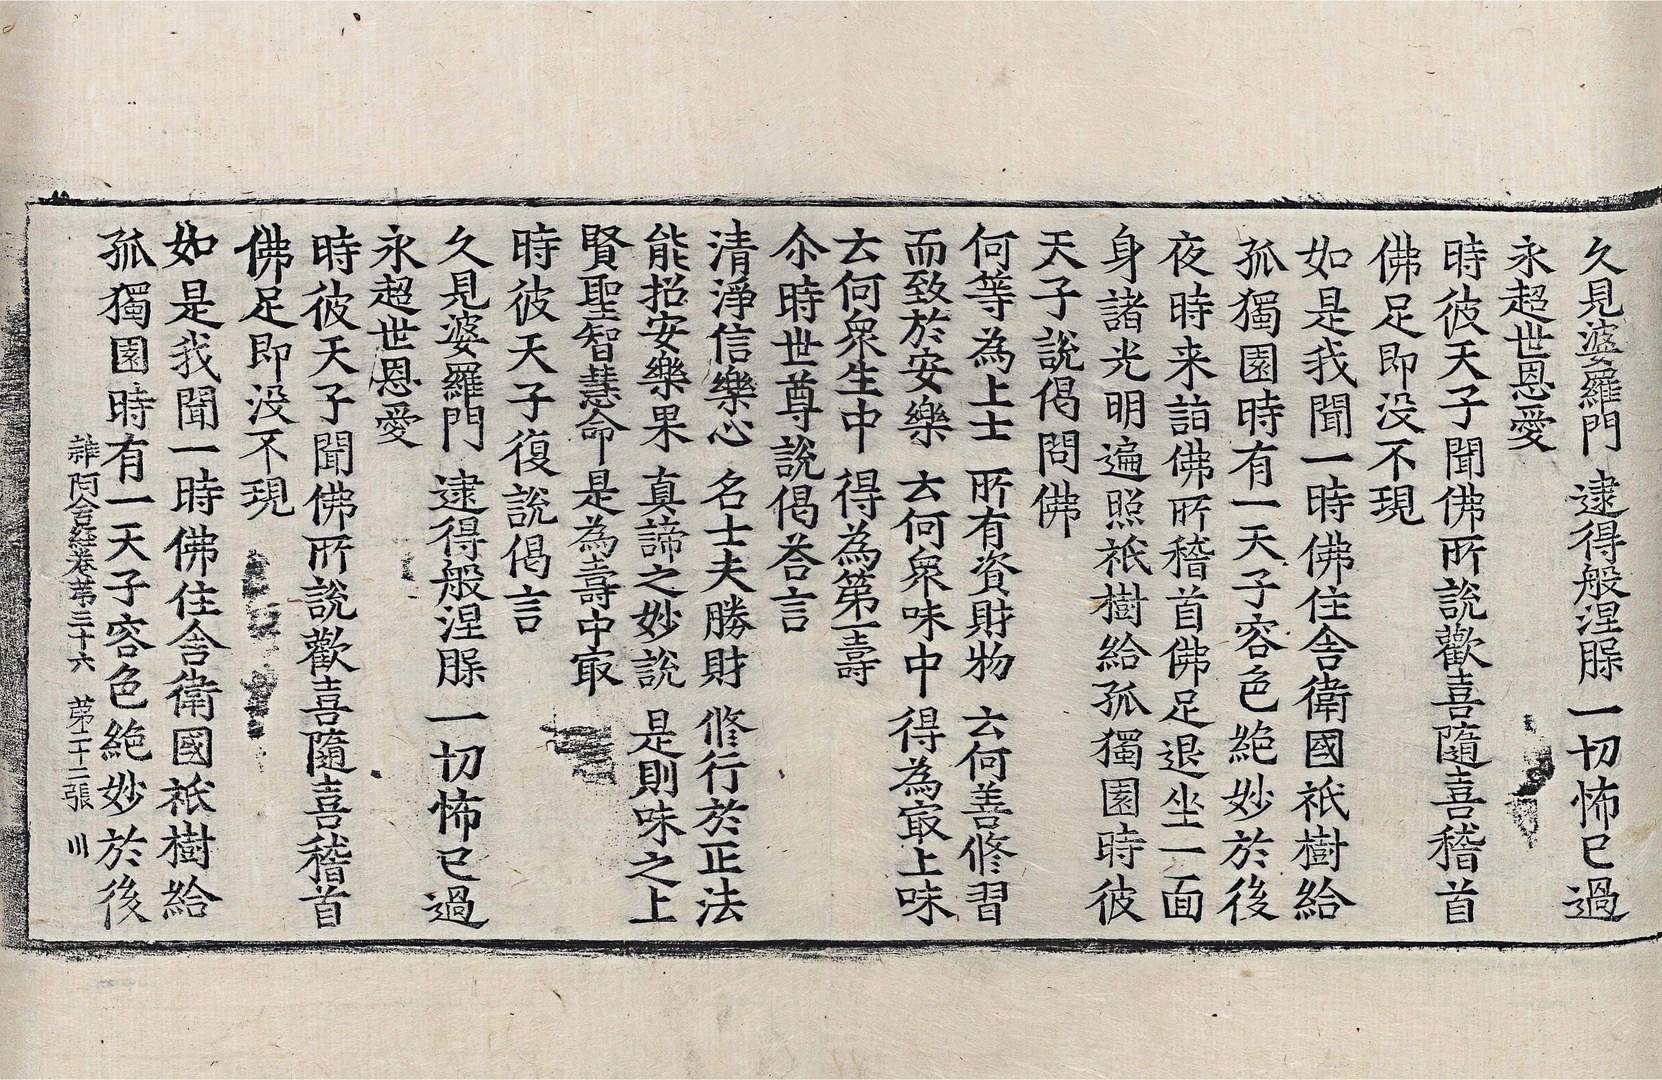 久見婆羅門　逮得般涅槃　一切怖已過
永超世恩愛
時彼天子聞佛所說歡喜隨喜稽首
佛足即没不現
如是我聞一時佛住舍衛國祇樹給
孤獨園時有一天子容色絶妙於後
夜時来詣佛所稽首佛足退坐一面
身諸光明遍照祇樹給孤獨園時彼
天子說偈問佛
何等為上士　所有資財物　云何善修習
而致於安樂　云何衆味中　得為冣上味
云何衆生中　得為第一壽
尒時世尊說偈荅言
清淨信樂心　名士夫勝財　修行於正法
能招安樂果　真諦之妙說　是則味之上
賢聖智慧命　是為壽中冣
時彼天子復說偈言
久見婆羅門　逮得般涅槃　一切怖已過
永超世恩愛
時彼天子聞佛所說歡喜隨喜稽首
佛足即没不現
如是我聞一時佛住舍衛國祇樹給
孤獨園時有一天子容色絶妙於後
雜阿含經卷第三十六　第二十二張　川